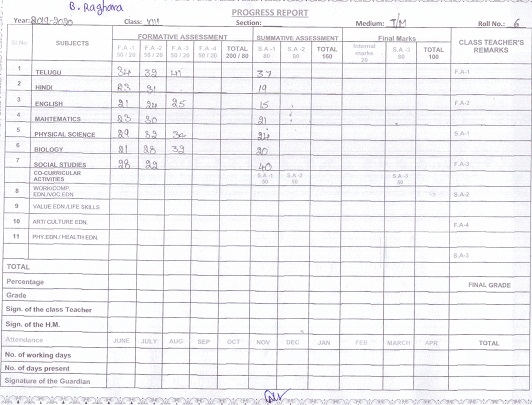 B. Raghava
PROGRESS REPORT
Year: 2019-2020 Class: VIII Section: Medium: T/M Roll No.: 6
FORMATIVE ASSESSMENT SUMMATIVE ASSESSMENT Final Marks
Sl.No. SUBJECTS F.A -1 50 / 20 F.A -2 50 / 20 F.A -3 50 / 20 F.A -4 50 / 20 TOTAL 200 / 80 S.A -1 80 S.A -2 80 TOTAL 160 Internal marks 20 S.A -3 80 TOTAL 100 CLASS TEACHER'S REMARKS
1 TELUGU 34 39 41 37 F.A-1
2 HINDI 23 31 19
3 ENGLISH 21 24 25 15 F.A-2
4 MAHTEMATICS 23 30 21
5 PHYSICAL SCIENCE 29 32 34 24 S.A-1
6 BIOLOGY 21 28 39 20
7 SOCIAL STUDIES 28 29 40 F.A-3
CO-CURRICULAR ACTIVITIES S.A -1 50 S.A -2 50 S.A -3 50
8 WORK/COMP. EDN./VOC.EDN S.A-2
9 VALUE EDN./LIFE SKILLS
10 ART/ CULTURE EDN. F.A-4
11 PHY.EDN./ HEALTH EDN.
S.A-3
TOTAL
Percentage FINAL GRADE
Grade
Sign. of the class Teacher
Sign. of the H.M.
Attendance JUNE JULY AUG SEP OCT NOV DEC JAN FEB MARCH APR TOTAL
No. of working days
No. of days present
Signature of the Guardian